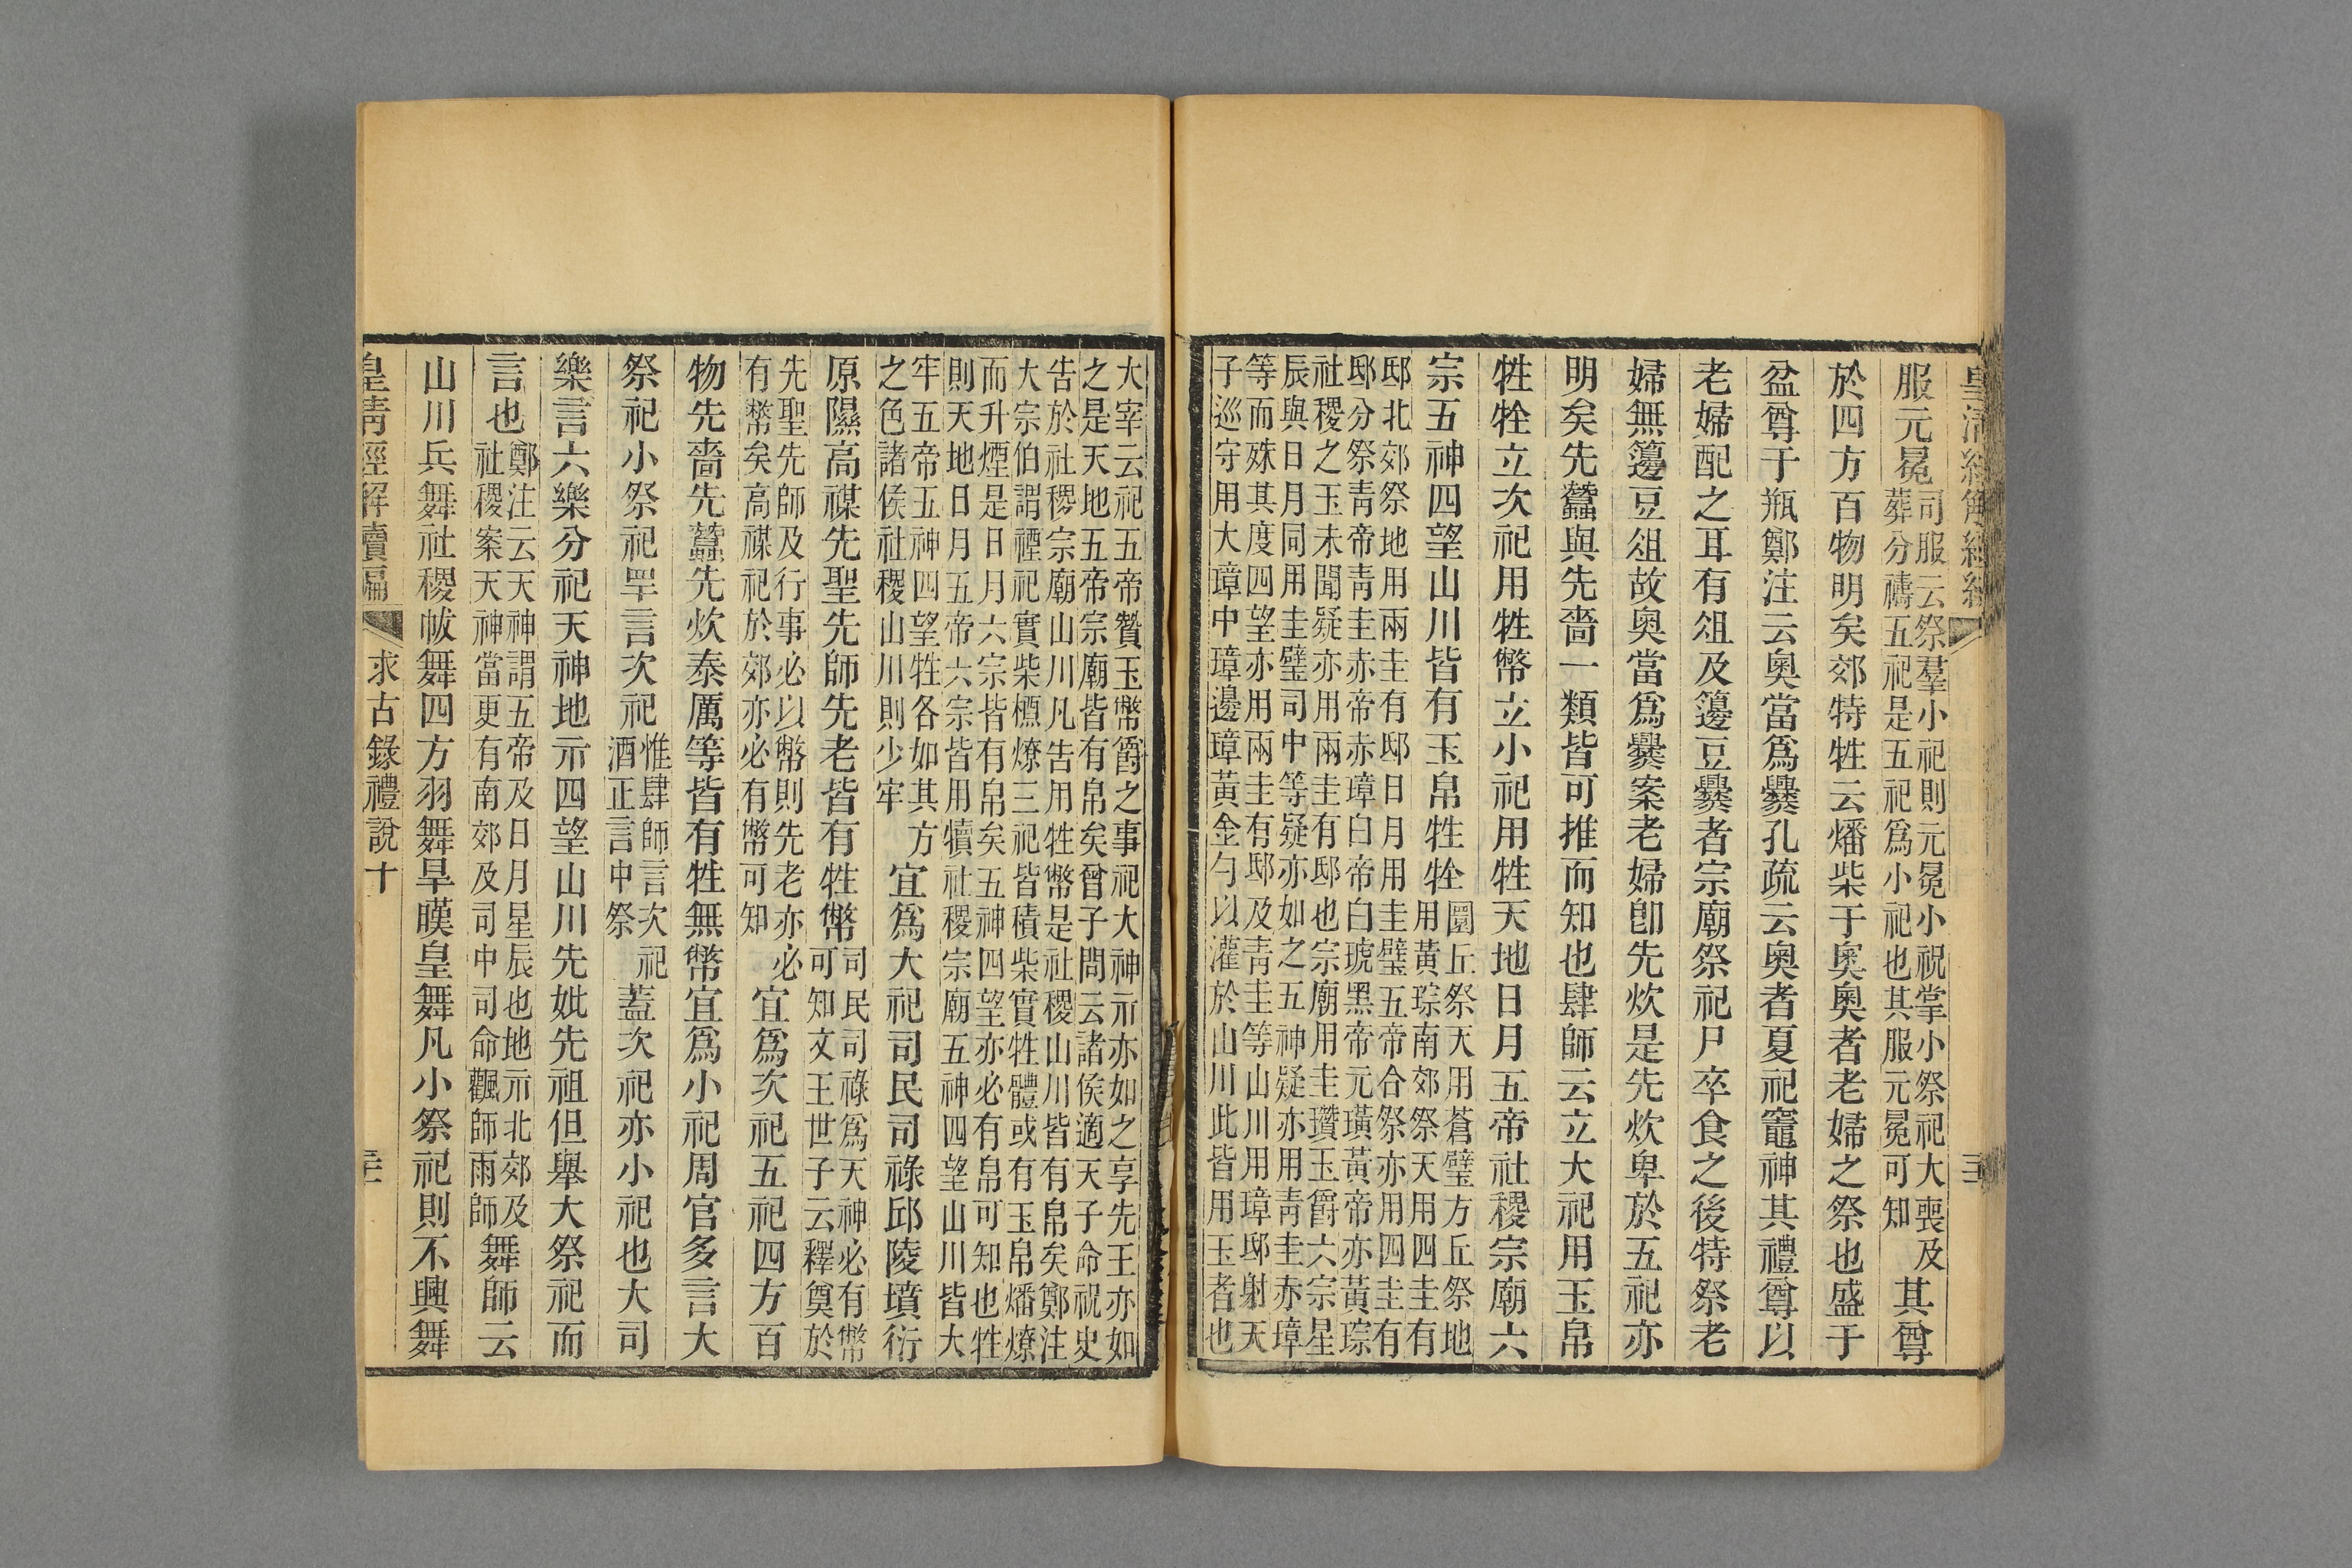 服元冕司服云祭羣小祀則元冕小祝掌小祭祀大喪及
葬分禱五祀是五祀爲小祀也其服元冕可知其尊
於四方百物明矣郊特牲云燔柴于奧奧者老婦之祭也盛于
盆尊于瓶鄭注云奧當爲爨孔疏云奧者夏祀竈神其禮尊以
老婦配之耳有俎及籩豆爨者宗廟祭祀尸卒食之後特祭老
婦無籩豆俎故奧當爲爨案老婦卽先炊是先炊卑於五祀亦
明矣先蠶與先嗇一類皆可推而知也肆師云立大祀用玉帛
牲牷立次祀用牲幣立小祀用牲天地日月五帝社稷宗廟六
宗五神四望山川皆有玉帛牲牷圜丘祭天用蒼璧方丘祭地
用黃琮南郊祭天用四圭有
邸北郊祭地用兩圭有邸日月用圭璧五帝合祭亦用四圭有
邸分祭靑帝靑圭赤帝赤璋白帝白琥黑帝元璜黃帝亦黃琮
社稷之玉未聞疑亦用兩圭有邸也宗廟用圭瓚玉爵六宗星
辰與日月同用圭璧司中等疑亦如之五神疑亦用靑圭赤璋
等而殊其度四望亦用兩圭有邸及靑圭等山川用璋邸射天
子巡守用大璋中璋邊璋黃金勺以灌於山川此皆用玉者也
大宰云祀五帝贊玉幣爵之事祀大神示亦如之享先王亦如
之是天地五帝宗廟皆有帛矣曾子問云諸侯適天子命祝史
告於社稷宗廟山川凡告用牲幣是社稷山川皆有帛矣鄭注
大宗伯謂禋祀實柴槱燎三祀皆積柴實牲體或有玉帛燔燎
而升煙是日月六宗皆有帛矣五神四望亦必有帛可知也牲
則天地日月五帝六宗皆用犢社稷宗廟五神四望山川皆大
牢五帝五神四望牲各如其方
之色諸侯社稷山川則少牢宜爲大祀司民司祿邱陵墳衍
原隰高禖先聖先師先老皆有牲幣司民司祿爲天神必有幣
可知文王世子云釋奠於
先聖先師及行事必以幣則先老亦必
有幣矣高禖祀於郊亦必有幣可知宜爲次祀五祀四方百
物先嗇先蠶先炊泰厲等皆有牲無幣宜爲小祀周官多言大
祭祀小祭祀罕言次祀惟肆師言次祀
酒正言中祭蓋次祀亦小祀也大司
樂言六樂分祀天神地示四望山川先妣先祖但舉大祭祀而
言也鄭注云天神謂五帝及日月星辰也地示北郊及
社稷案天神當更有南郊及司中司命觀師雨師舞師云
山川兵舞社稷帗舞四方羽舞旱暵皇舞凡小祭祀則不興舞
皇淸經解續編
求古錄禮說十